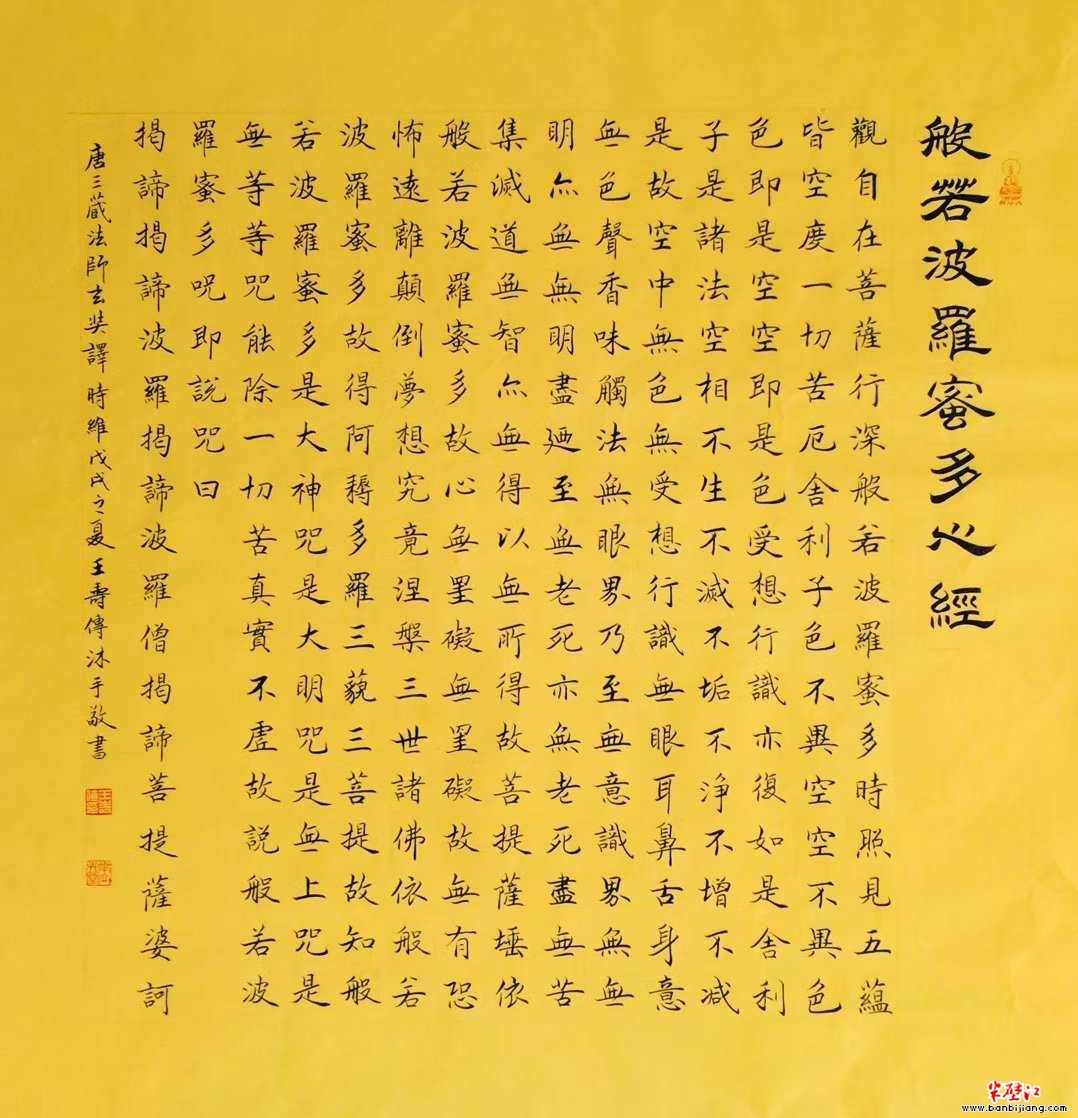 般若波羅蜜多心經
觀自在菩薩行深般若波羅蜜多時照見五蘊
皆空度一切苦厄舍利子色不異空空不異色
色即是空空即是色受想行識亦復如是舍利
子是諸法空相不生不滅不垢不淨不增不減
是故空中無色無受想行識無眼耳鼻舌身意
無色聲香味觸法無眼界乃至無意識界無無
明亦無無明盡廼至無老死亦無老死盡無苦
集滅道無智亦無得以無所得故菩提薩埵依
般若波羅蜜多故心無罣礙無罣礙故無有恐
怖遠離顛倒夢想究竟涅槃三世諸佛依般若
波羅蜜多故得阿耨多羅三藐三菩提故知般
若波羅蜜多是大神咒是大明咒是無上咒是
無等等咒能除一切苦真實不虛故説般若波
羅蜜多呪即說咒曰
揭諦揭諦波羅揭諦波羅僧揭諦菩提薩婆訶
唐三藏法師玄奘譯時維戊戌之夏王壽傳沐手敬書
半壁江
www.banbijiang.com